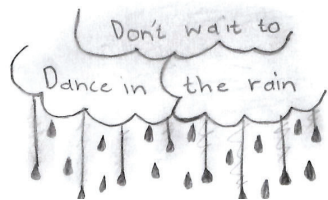 Don't wait to
Dance in the rain